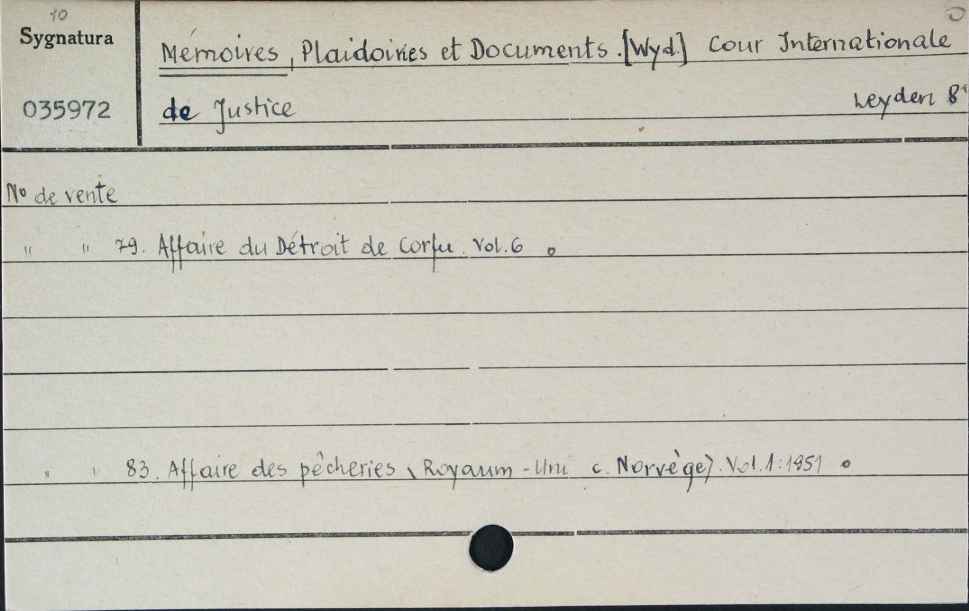 10
Sygnatura
035972
Mémoires, Plaidoiries et Documents. [Wyd.] Cour Internationale
de Justice Leyden 8°
No de vente
" " 79. Affaire du Détroit de Corfu. Vol. 6
" " 83. Affaire des pêcheries (Royaum-Uni c. Norvège). Vol. 1: 1951